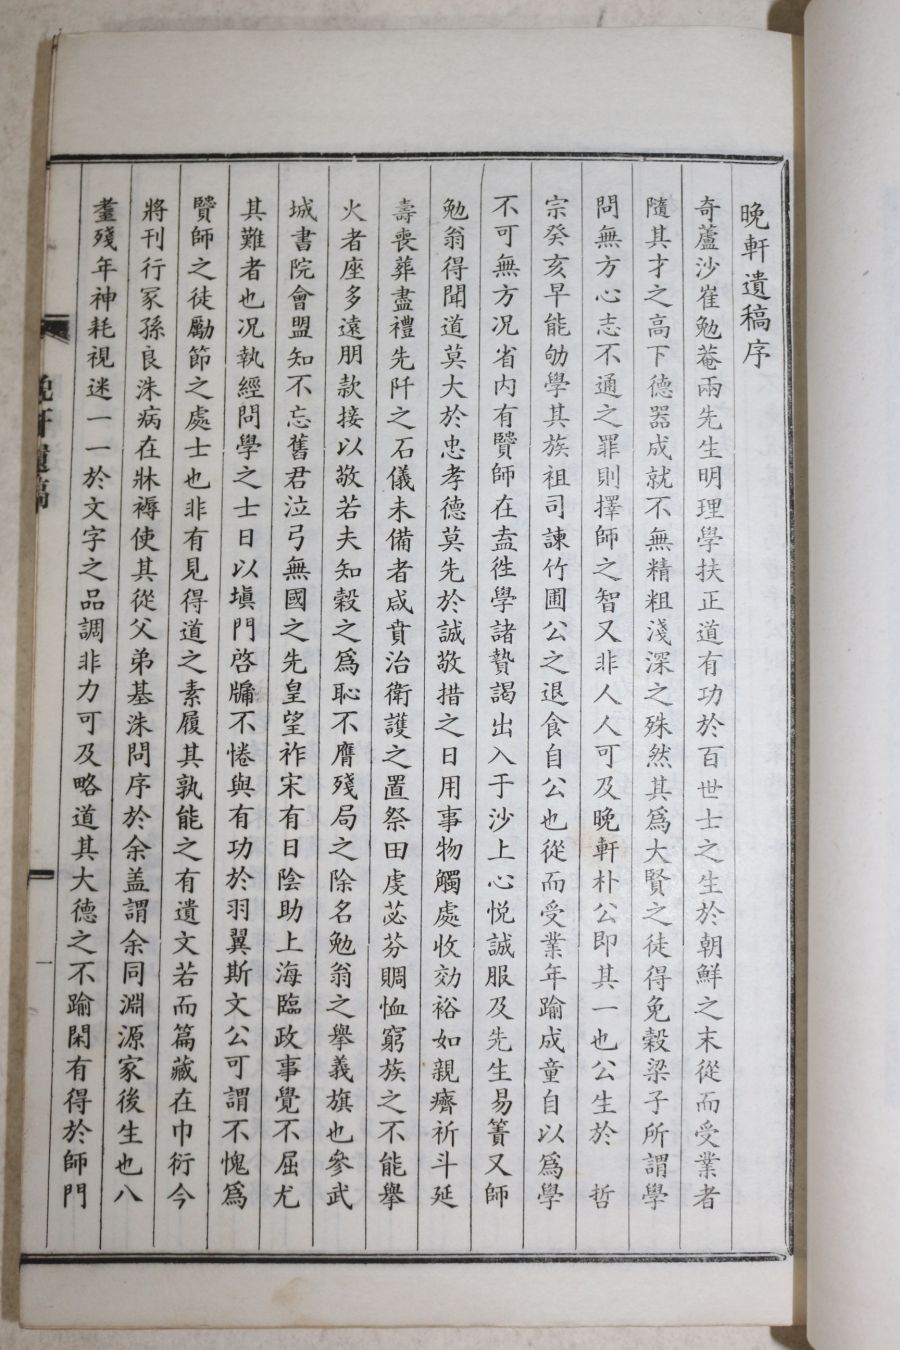 晚軒遺稿序
奇蘆沙崔勉菴兩先生明理學扶正道有功於百世士之生於朝鮮之末從而受業者
隨其才之高下德器成就不無精粗淺深之殊然其爲大賢之徒得免穀梁子所謂學
問無方心志不通之罪則擇師之智又非人人可及晚軒朴公即其一也公生於 哲
宗癸亥早能劬學其族祖司諫竹圃公之退食自公也從而受業年踰成童自以爲學
不可無方况省內有賢師在盍徃學諸贄謁出入于沙上心悅誠服及先生易簀又師
勉翁得聞道莫大於忠孝德莫先於誠敬措之日用事物觸處收効裕如親癠祈斗延
壽喪葬盡禮先阡之石儀未備者咸賁治衛護之置祭田虔苾芬賙恤窮族之不能擧
火者座多遠朋款接以敬若夫知穀之爲恥不膺殘局之除名勉翁之擧義旗也參武
城書院會盟知不忘舊君泣弓無國之先皇望祚宋有日陰助上海臨政事覺不屈尤
其難者也况執經問學之士日以塡門啓牖不惓與有功於羽翼斯文公可謂不愧爲
賢師之徒勵節之處士也非有見得道之素履其孰能之有遺文若而篇藏在巾衍今
將刊行冢孫良洙病在牀褥使其從父弟基洙問序於余盖謂余同淵源家後生也八
耋殘年神耗視迷一一於文字之品調非力可及略道其大德之不踰閑有得於師門
晚軒遺稿
一